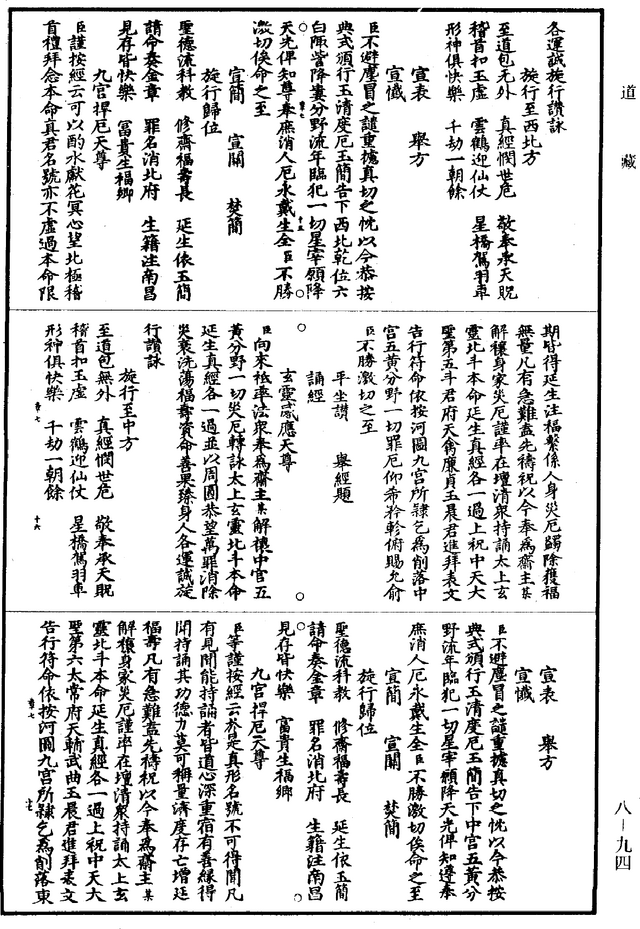 道藏
各運誠旋行讚詠
旋行至西北方
至道包无外　真經憫世危　敬奉承天貺
稽首扣玉虛　雲鶴迎仙仗　星橋駕羽車
形神俱快樂　千劫一朝餘
宣表　舉方
宣懺
臣不避塵冒之譴重攄真切之忱以今恭按
典式頒行玉清度厄玉簡告下西北乾位六
白陬訾降婁分野流年臨犯一切星宰願降
天光俾知尊奉庶消人厄永戴生全臣不勝
激切俟命之至
宣簡　宣關　焚簡
旋行歸位
聖德流科教　修齋福壽長　延生依玉簡
請命奏金章　罪名消北府　生籍注南昌
見存皆快樂　富貴生福鄉
九宮捍厄天尊
臣謹按經云可以酌水獻花冥心望北極稽
首禮拜念本命真君名號亦不虛過本命限
期皆得延生注福繫係人身災厄蠲除獲福
無量凡有急難盡先禱祝以今奉為齋主某
解穰身家災厄謹率在壇清衆持誦太上玄
靈北斗本命延生真經各一過上祝中天大
聖第五斗君府天禽廉貞玉晨君進拜表文
告行符命依按河圖九宮所隸乞為削落中
宮五黃分野一切罪厄仰希矜軫俯賜允俞
臣不勝激切之至
平坐讚　舉經題
誦經
玄靈感應天尊
臣向來祗率法衆奉為齋主某解穰中宮五
黃分野一切災厄轉詠太上玄靈北斗本命
延生真經各一過並以周圓恭望萬罪消除
災衰洗蕩福壽資命善果臻身人各運誠旋
行讚詠
旋行至中方
至道包無外　真經憫世危　敬奉承天貺
稽首扣玉虛　雲鶴迎仙仗　星橋駕羽車
形神俱快樂　千劫一朝餘
宣表　舉方
宣懺
臣不避塵冒之譴重攄真切之忱以今恭按
典式頒行玉清度厄玉簡告下中宮五黃分
野流年臨犯一切星宰願降天光俾知遵奉
庶消人厄永戴生全臣不勝激切俟命之至
宣簡　宣關　焚簡
旋行歸位
聖德流科教　修齋福壽長　延生依玉簡
請命奏金章　罪名消北府　生籍注南昌
見存皆快樂　富貴生福鄉
九宮捍厄天尊
臣等謹按經云於是真形名號不可得聞凡
有見聞能持誦者皆道心深重宿有善緣得
聞持誦其功德力莫可稱量濟度存亡增延
福壽凡有急難盡先禱祝以今奉為齋主某
解穰身家災厄謹率在壇清衆持誦太上玄
靈北斗本命延生真經各一過上祝中天大
聖第六太常府天輔武曲玉晨君進拜表文
告行符命依按河圖九宮所隸乞為削落東
八－九四